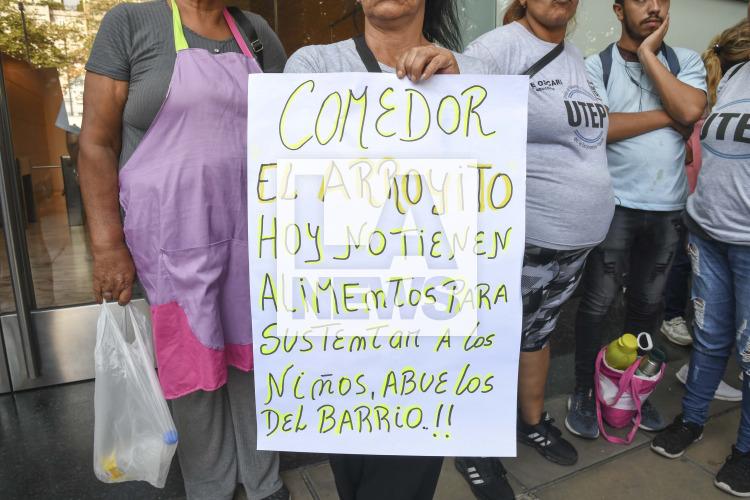 COMEDOR
EL ARROYITO
HOY NO TIENEN
ALIMENTOS PARA
SUSTENTAR A LOS
NIÑOS, ABUELOS
DEL BARRIO..!!
LA
NEWS
UTEP
UTE